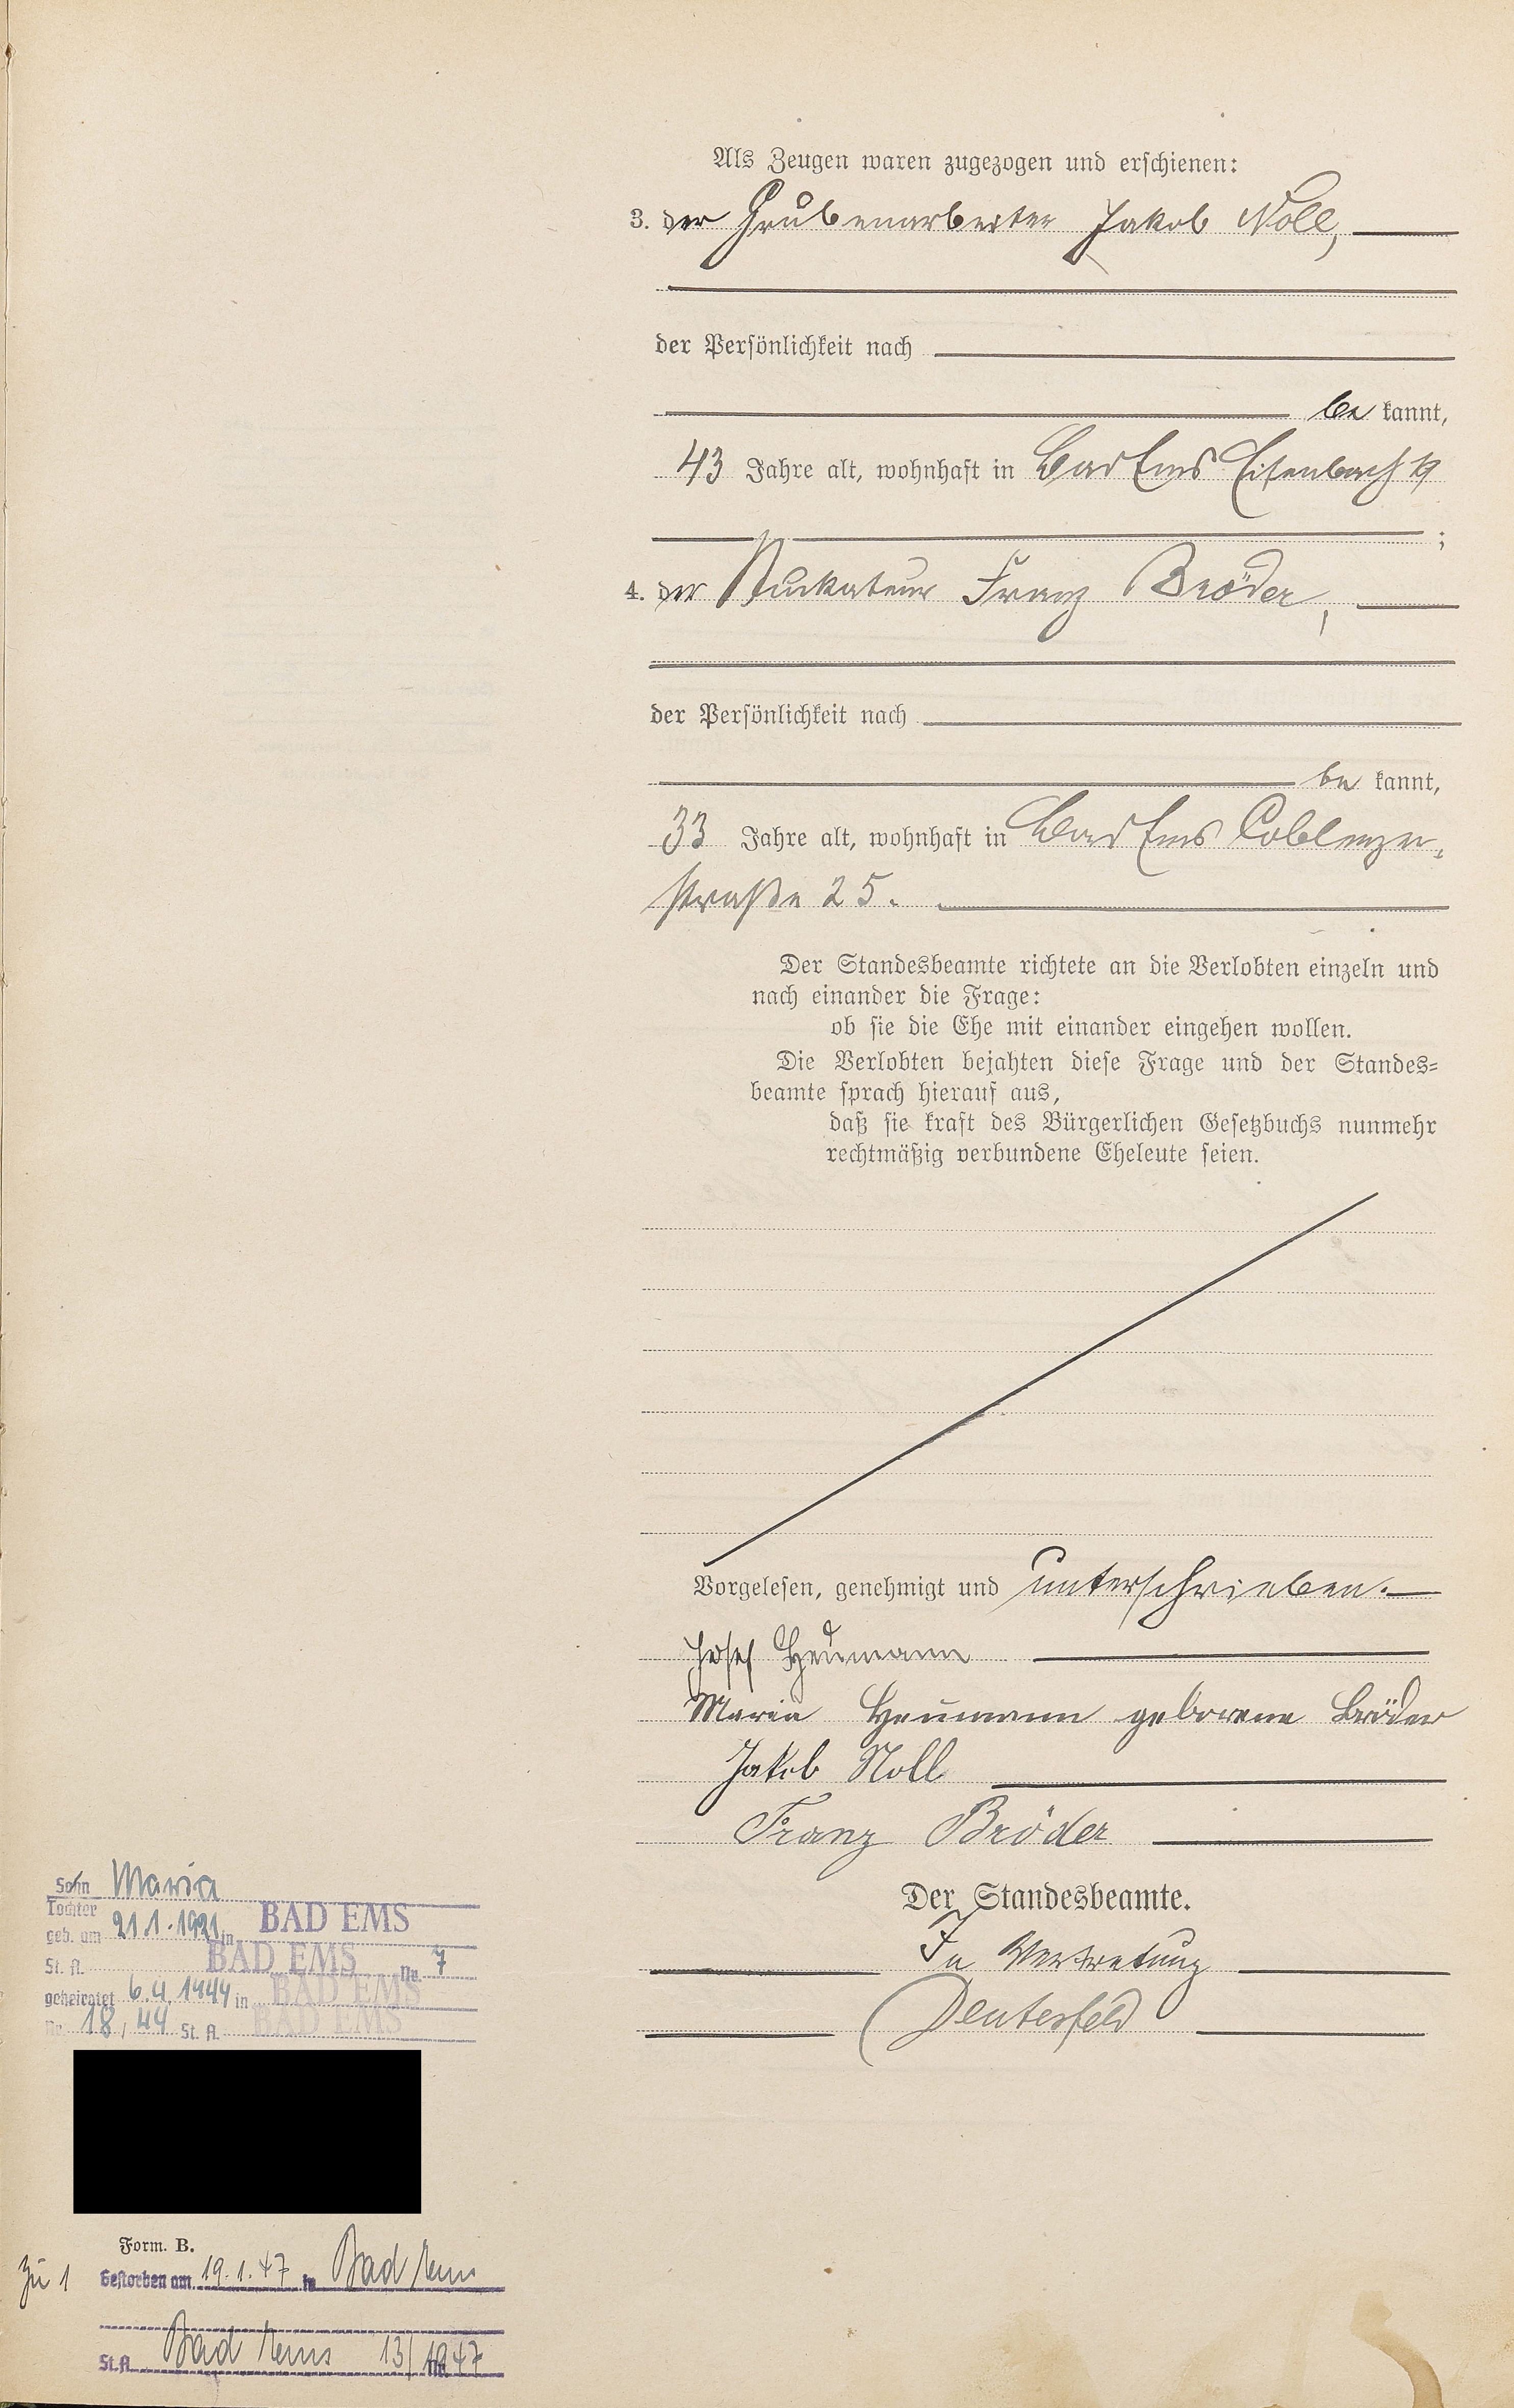 Als Zeugen waren zugezogen und erschienen:
3. der Grubenarbeiter Jakob Noll,
der Persönlichkeit nach
be kannt,
43 Jahre alt, wohnhaft in Bad Ems Eisenbach 19
;
4. der Stuckateur Franz Bröder,
der Persönlichkeit nach
be kannt,
33 Jahre alt, wohnhaft in Bad Ems Coblenzer-
straße 25.
Der Standesbeamte richtete an die Verlobten einzeln und
nach einander die Frage:
ob sie die Ehe mit einander eingehen wollen.
Die Verlobten bejahten diese Frage und der Standes-
beamte sprach hierauf aus,
daß sie kraft des Bürgerlichen Gesetzbuchs nunmehr
rechtmäßig verbundene Eheleute seien.
Vorgelesen, genehmigt und unterschrieben.
Josef Heumann
Maria Heumann geborene Bröder
Jakob Noll
Franz Bröder
Der Standesbeamte.
In Vertretung
Deutesfeld
Sohn Maria
Tochter
geb. am 21.1.1921 in BAD EMS
St. A. BAD EMS Nr. 7
geheiratet 6.4.1944 in BAD EMS
Nr. 18/44 St. A. BAD EMS
Form. B.
Zu 1 Gestorben am 19.1.47 in Bad Ems
St.A. Bad Ems 13/1947 Nr.